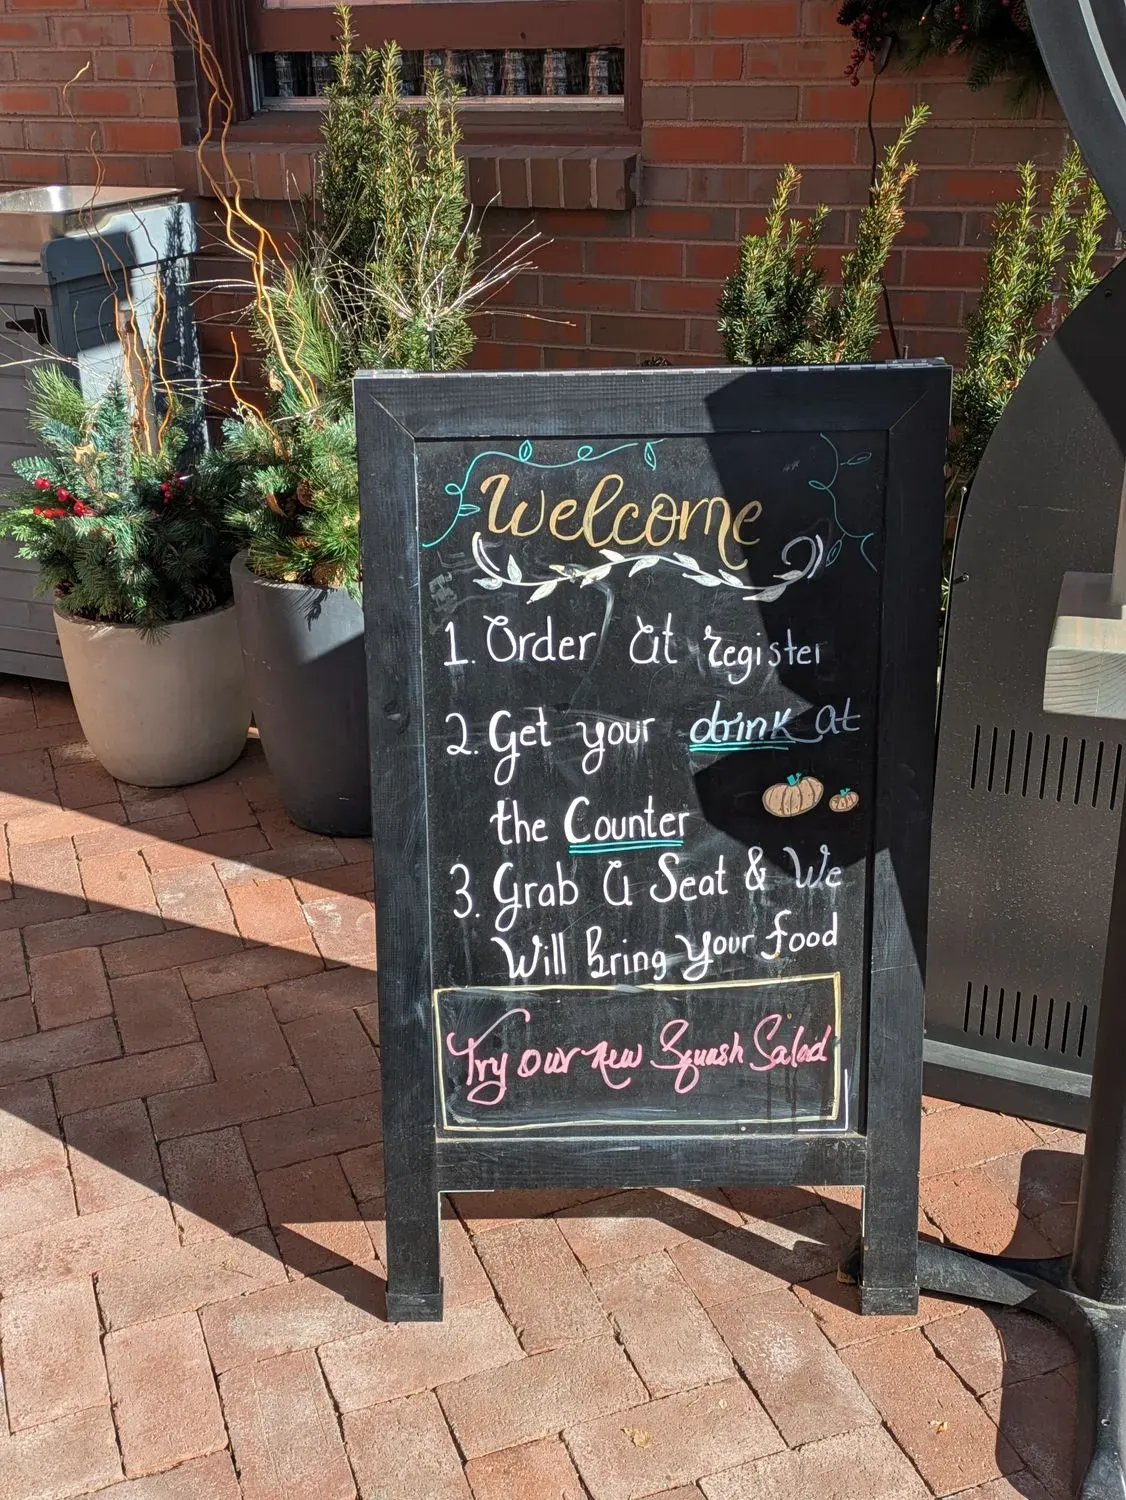 Welcome
1. Order at register
2. Get your drink at
the Counter
3. Grab a Seat & We
Will bring your food
Try our new Squash Salad